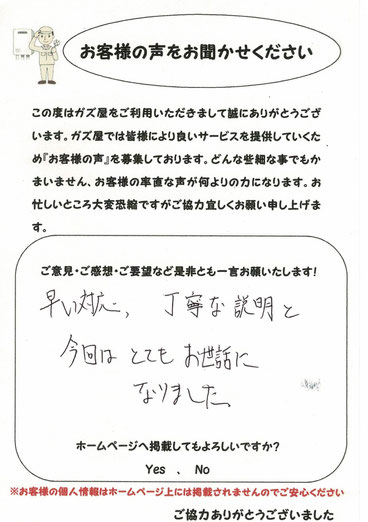 お客様の声をお聞かせください
この度はガズ屋をご利用いただきまして誠にありがとうござ
います。ガズ屋では皆様により良いサービスを提供していくた
め『お客様の声』を募集しております。どんな些細な事でもか
まいません、お客様の率直な声が何よりの力になります。お
忙しいところ大変恐縮ですがご協力宜しくお願い申し上げま
す。
ご意見・ご感想・ご要望など是非とも一言お願いたします!
早い対応、丁寧な説明と
今回は とても お世話に
なりました。
ホームページへ掲載してもよろしいですか?
Yes 、 No
※お客様の個人情報はホームページ上には掲載されませんのでご安心ください
ご協力ありがとうございました